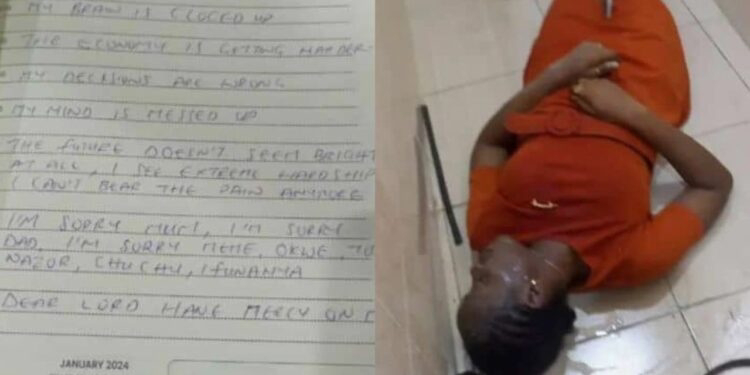 MY BRAIN IS CLOGED UP
THE ECONOMY IS GETTING HARDER
MY DECISIONS ARE WRONG
MY MIND IS MESSED UP
THE FUTURE DOESN'T SEEM BRIGHT
AT ALL, I SEE EXTREME HARDSHIP
I CAN'T BEAR THE PAIN ANYMORE
I'M SORRY MUM, I'M SORRY
DAD, I'M SORRY MEME, OKWE,
NAZOR, CHUCHU, IFUNANYA
DEAR LORD HAVE MERCY ON
JANUARY 2024